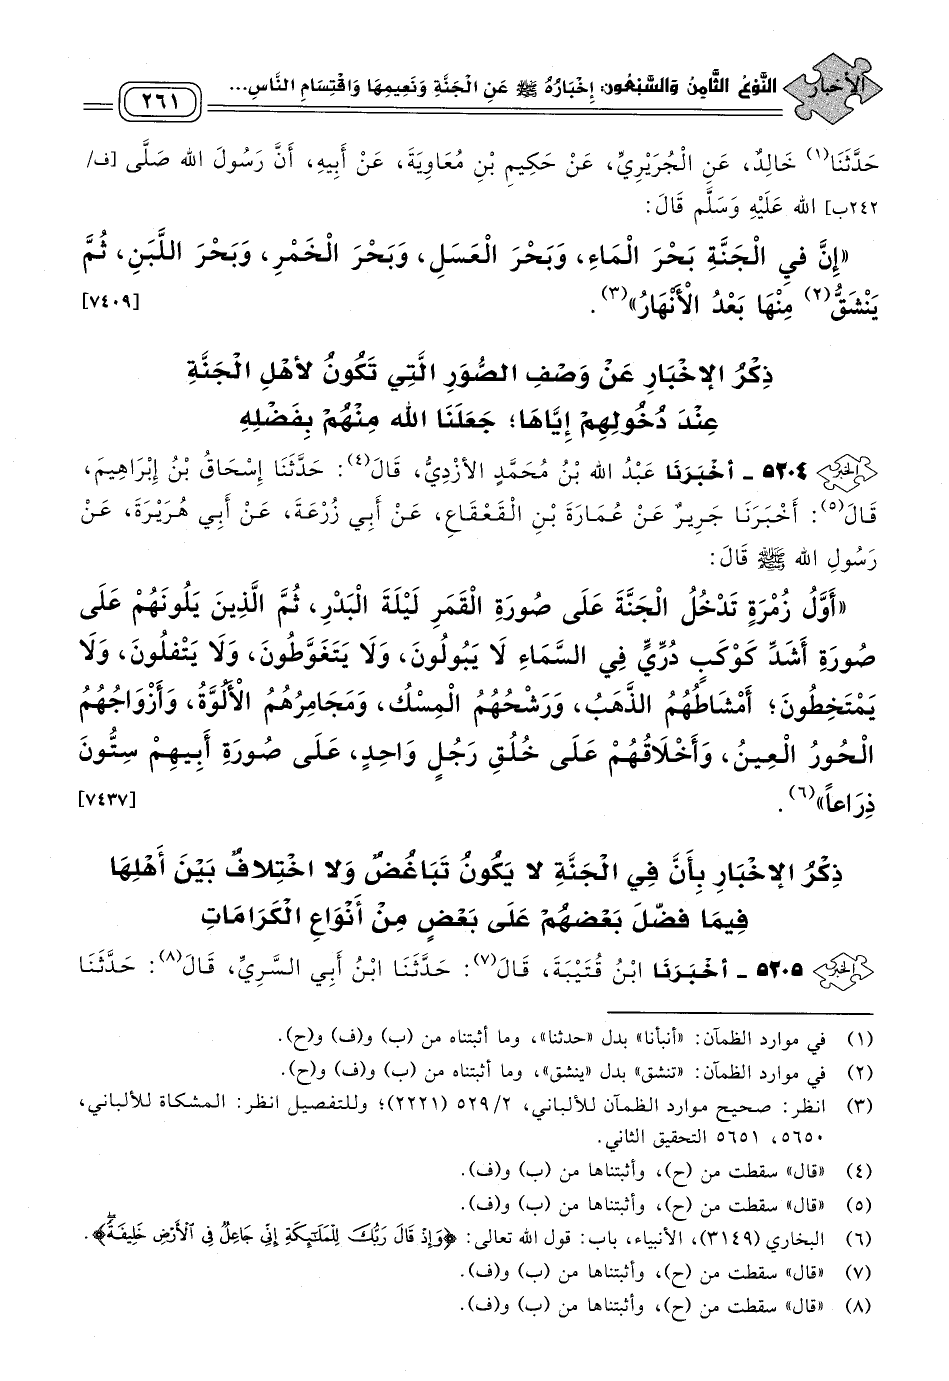 الأخبار
النَّوْعُ الثَّامِنُ وَالسَّبْعُونَ: إِخْبَارُهُ ﷺ عَنِ الْجَنَّةِ وَنَعِيمِهَا وَاقْتِسَامِ النَّاسِ...
٢٦١
حَدَّثَنَا(١) خَالِدٌ، عَنِ الْجُرَيْرِيِّ، عَنْ حَكِيمِ بْنِ مُعَاوِيَةَ، عَنْ أَبِيهِ، أَنَّ رَسُولَ الله صَلَّى [ف/
٢٤٢ب] الله عَلَيْهِ وَسَلَّم قَالَ:
«إِنَّ فِي الْجَنَّةِ بَحْرَ الْمَاءِ، وَبَحْرَ الْعَسَلِ، وَبَحْرَ الْخَمْرِ، وَبَحْرَ اللَّبَنِ، ثُمَّ
يَنْشَقُّ(٢) مِنْهَا بَعْدُ الْأَنْهَارُ»(٣).
[٧٤٠٩]
ذِكْرُ الإخْبَارِ عَنْ وَصْفِ الصُّوَرِ الَّتِي تَكُونُ لأهْلِ الْجَنَّةِ
عِنْدَ دُخُولِهِمْ إِيَّاهَا؛ جَعَلَنَا الله مِنْهُمْ بِفَضْلِهِ
الخبر ٥٢٠٤ - أخْبَرَنَا عَبْدُ الله بْنُ مُحَمَّدٍ الأزْدِيُّ، قَالَ(٤): حَدَّثَنَا إِسْحَاقُ بْنُ إِبْرَاهِيمَ،
قَالَ(٥): أَخْبَرَنَا جَرِيرٌ عَنْ عُمَارَةَ بْنِ الْقَعْقَاعِ، عَنْ أَبِي زُرْعَةَ، عَنْ أَبِي هُرَيْرَةَ، عَنْ
رَسُولِ الله ﷺ قَالَ:
«أَوَّلُ زُمْرَةٍ تَدْخُلُ الْجَنَّةَ عَلَى صُورَةِ الْقَمَرِ لَيْلَةَ الْبَدْرِ، ثُمَّ الَّذِينَ يَلُونَهُمْ عَلَى
صُورَةِ أَشَدِّ كَوْكَبٍ دُرِّيٍّ فِي السَّمَاءِ لَا يَبُولُونَ، وَلَا يَتَغَوَّطُونَ، وَلَا يَتْفلُونَ، وَلَا
يَمْتَخِطُونَ؛ أَمْشَاطُهُمُ الذَّهَبُ، وَرَشْحُهُمُ الْمِسْكُ، وَمَجَامِرُهُمُ الْأَلُوَّةُ، وَأَزْوَاجُهُمُ
الْحُورُ الْعِينُ، وَأَخْلَاقُهُمْ عَلَى خُلُقِ رَجُلٍ وَاحِدٍ، عَلَى صُورَةِ أَبِيهِمْ سِتُّونَ
ذِرَاعاً»(٦).
[٧٤٣٧]
ذِكْرُ الإخْبَارِ بِأَنَّ فِي الْجَنَّةِ لا يَكُونُ تَبَاغُضٌ وَلا اخْتِلافٌ بَيْنَ أَهْلِهَا
فِيمَا فضّلَ بَعْضهُمْ عَلَى بَعْضٍ مِنْ أَنْوَاعِ الْكَرَامَاتِ
الخبر ٥٢٠٥ - أخْبَرَنَا ابْنُ قُتَيْبَةَ، قَالَ(٧): حَدَّثَنَا ابْنُ أَبِي السَّرِيِّ، قَالَ(٨): حَدَّثَنَا
(١) في موارد الظمآن: «أنبأنا» بدل «حدثنا»، وما أثبتناه من (ب) و(ف) و(ح).
(٢) في موارد الظمآن: «تنشق» بدل «ينشق»، وما أثبتناه من (ب) و(ف) و(ح).
(٣) انظر: صحيح موارد الظمآن للألباني، ٢/ ٥٢٩ (٢٢٢١)؛ وللتفصيل انظر: المشكاة للألباني،
٥٦٥٠، ٥٦٥١ التحقيق الثاني.
(٤) «قال» سقطت من (ح)، وأثبتناها من (ب) و(ف).
(٥) «قال» سقطت من (ح)، وأثبتناها من (ب) و(ف).
(٦) البخاري (٣١٤٩)، الأنبياء، باب: قول الله تعالى: ﴿وَإِذْ قَالَ رَبُّكَ لِلْمَلَٰٓئِكَةِ إِنِّي جَاعِلٌ فِي ٱلْأَرْضِ خَلِيفَةً﴾.
(٧) «قال» سقطت من (ح)، وأثبتناها من (ب) و(ف).
(٨) «قال» سقطت من (ح)، وأثبتناها من (ب) و(ف).